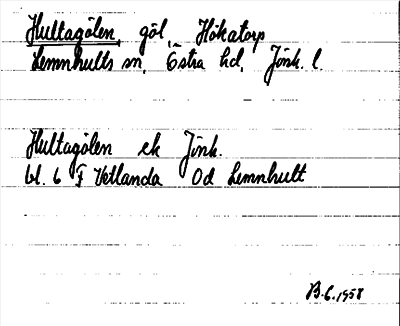 Hultagölen, göl, Hökatorp
Lemnhults sn, Östra hd, Jönk. l.
Hultagölen ek Jönk.
bl. 6 F Vetlanda Od Lemnhult
B.G. 1958